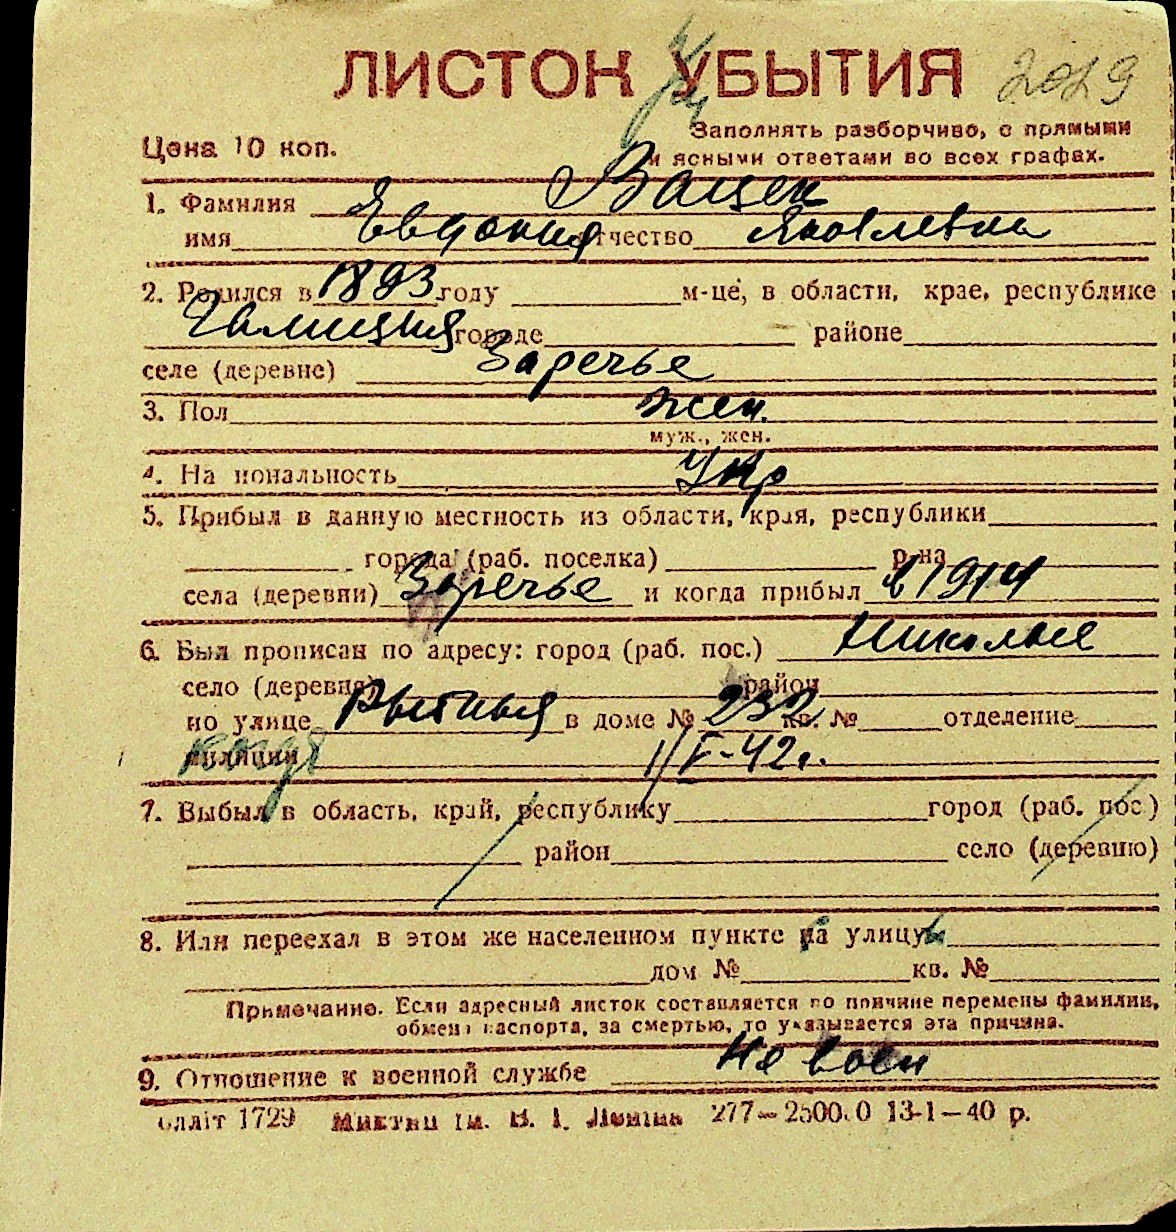 ЛИСТОК УБЫТИЯ 2029
Цена 10 коп.
Заполнять разборчиво, с прямыми
и ясными ответами во всех графах.
1. Фамилия Ващек
имя Евдокия отчество Яковлевна
2. Родился в 1893 году м-це, в области, крае, республике
Галиция городе районе
селе (деревне) Заречье
3. Пол жен.
муж., жен.
4. На иональность Укр
5. Прибыл в данную местность из области, края, республики
города (раб. поселка) р-на
села (деревни) Заречье и когда прибыл в 1914
6. Был прописан по адресу: город (раб. пос.) Николаев
село (деревня) район
по улице Рыбная в доме № 232 кв. № отделение
милиции 1/V-42г.
7. Выбыл в область, край, республику город (раб. пос.)
район село (деревню)
8. Или переехал в этом же населенном пункте на улицу
дом № кв. №
Примечание. Если адресный листок составляется по причине перемены фамилии,
обмена паспорта, за смертью, то указывается эта причина.
9. Отношение к военной службе Не воен
блліт 1729 ім. В. І. Леніна 277—25000 13-1—40 р.